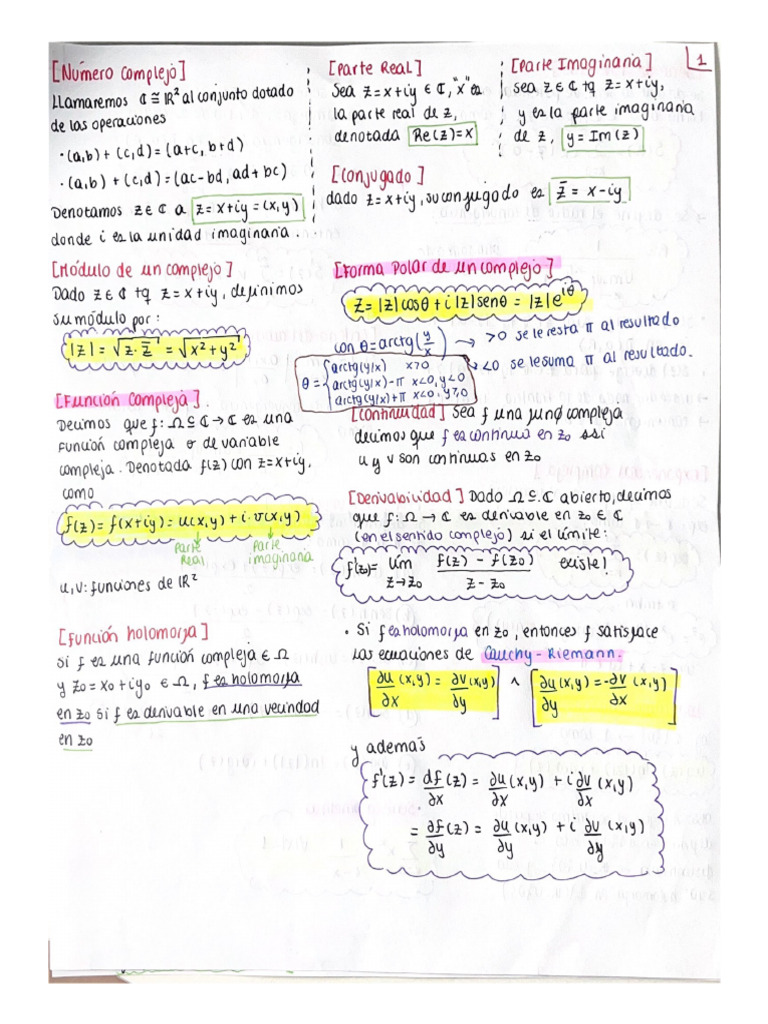 1
[Número Complejo]
Llamaremos ℂ ≡ ℝ² al conjunto dotado
de las operaciones
· (a,b) + (c,d) = (a+c, b+d)
· (a,b) + (c,d) = (ac-bd, ad+bc)
Denotamos z ∈ ℂ a z = x+iy = (x,y)
donde i es la unidad imaginaria.
[Parte Real]
Sea z = x+iy ∈ ℂ, "x" es
la parte real de z,
denotada Re(z)=x
[Parte Imaginaria]
sea z ∈ ℂ tq z = x+iy,
y es la parte imaginaria
de z, y = Im(z)
[Conjugado]
dado z = x+iy, su conjugado es z̄ = x-iy
[Módulo de un complejo]
Dado z ∈ ℂ tq z = x+iy, definimos
su módulo por:
|z| = √(z·z̄) = √(x²+y²)
[Forma Polar de un complejo]
z = |z| cosθ + i |z| senθ = |z| e^{iθ}
con θ = arctg(y/x) → >0 se le resta π al resultado
→ <0 se le suma π al resultado.
θ = { arctg(y/x) x>0
arctg(y/x) - π x<0, y<0
arctg(y/x) + π x<0, y≥0
[Función Compleja].
Decimos que f: Ω ⊆ ℂ → ℂ es una
función compleja o de variable
compleja. Denotada f(z) con z = x+iy,
como
f(z) = f(x+iy) = u(x,y) + i·v(x,y)
Parte Real
Parte imaginaria
u,v: funciones de ℝ²
[Continuidad] Sea f una func compleja
decimos que f es continua en z₀ ssi
u y v son continuas en z₀
[Derivabilidad] Dado Ω ⊆ ℂ abierto, decimos
que f: Ω → ℂ es derivable en z₀ ∈ ℂ
(en el sentido complejo) si el límite:
f'(z) = lím z→z₀ (f(z) - f(z₀))/(z - z₀) existe!
[Función holomorfa]
Si f es una función compleja ∈ Ω
y z₀ = x₀+iy₀ ∈ Ω, f es holomorfa
en z₀ si f es derivable en una vecindad
en z₀
· Si f es holomorfa en z₀, entonces f satisface
las ecuaciones de Cauchy-Riemann.
[∂u/∂x (x,y) = ∂v/∂y (x,y)] ∧ [∂u/∂y (x,y) = -∂v/∂x (x,y)]
y además
f'(z) = df/∂x (z) = ∂u/∂x (x,y) + i ∂v/∂x (x,y)
= ∂f/∂y (z) = ∂u/∂y (x,y) + i ∂v/∂y (x,y)